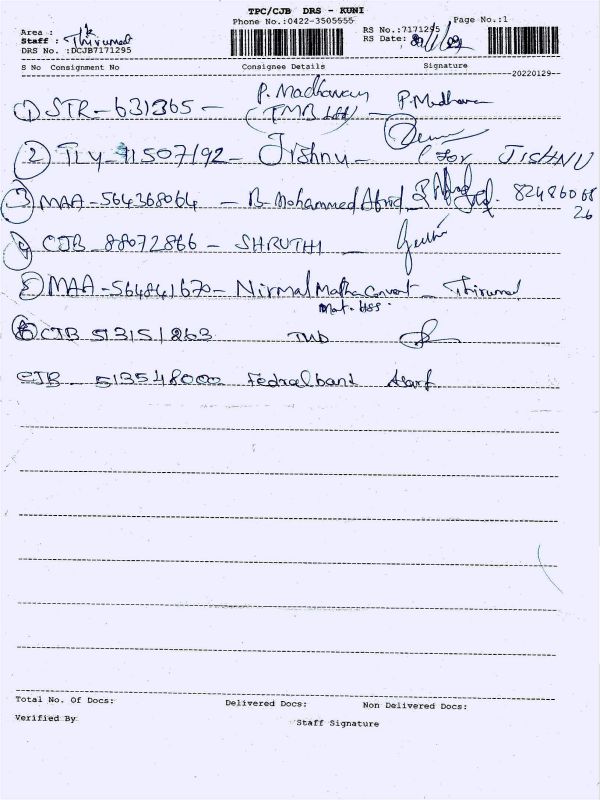 TPC/CJB DRS - KUNI
Phone No.:0422-3505555 Page No.:1
Area : RS No.:7171295
Staff : Thirumal RS Date:
DRS No. :DCJB7171295
S No Consignment No Consignee Details Signature
20220129
P. Madhavan
1 STR - 631365 - (TMB P. Madhava
2 TLY - 71507192 - Jishnu - for JISHNU
3 MAA - 564368064 - B. Mohammed Afrid 82486068
26
4 CJB - 88072866 - SHRUTHI -
5 MAA - 564841670 - Nirmal Matha Convent - Thirumal
Mat. HSS.
6 CJB 513151263 TMB
CJB 513548000 Fedralbank
Total No. Of Docs: Delivered Docs: Non Delivered Docs:
Verified By Staff Signature